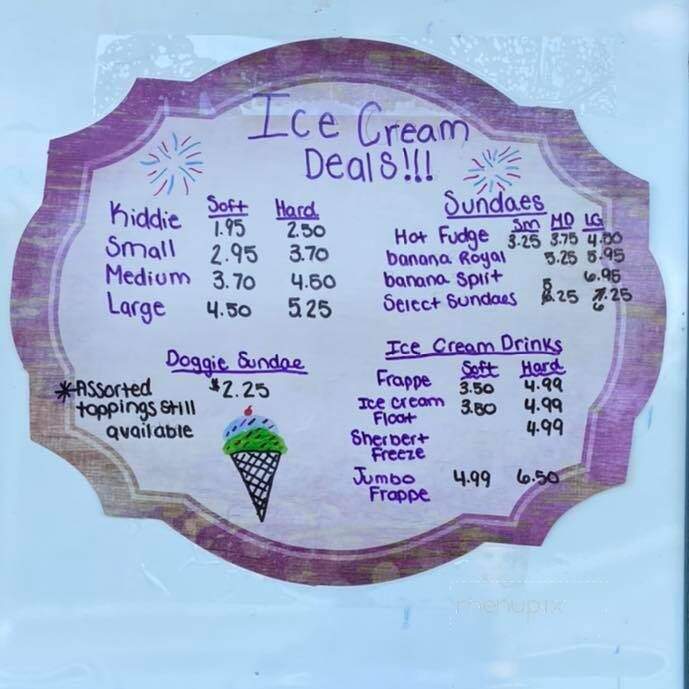 Ice Cream
Deals!!!
Soft Hard
Kiddie 1.95 2.50
Small 2.95 3.70
Medium 3.70 4.60
Large 4.50 5.25
Sundaes
Sm MD LG
Hot Fudge 3.25 3.75 4.50
banana Royal 5.25 5.95
banana Split 6.95
Select Sundaes .25 .25
Doggie Sundae
$2.25
*Assorted
toppings still
available
Ice Cream Drinks
Soft Hard
Frappe 3.50 4.99
Ice cream 3.50 4.99
Float
Sherbert 4.99
Freeze
Jumbo 4.99 6.50
Frappe
menupix